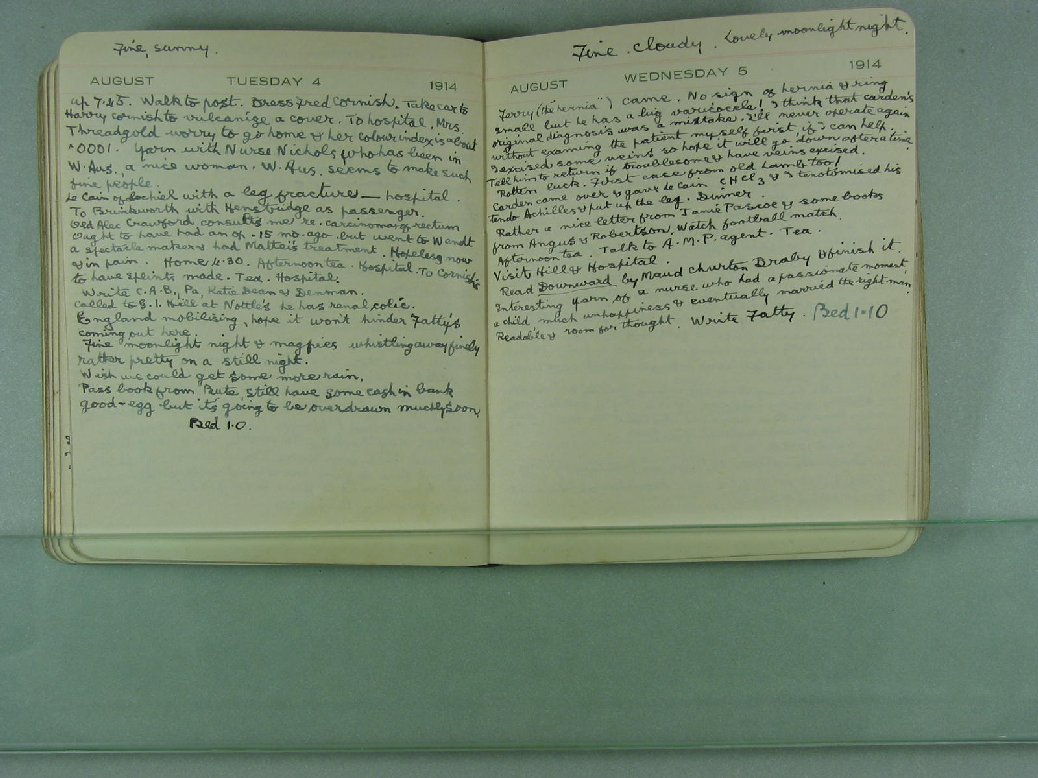 Fine, sunny.
AUGUST TUESDAY 4 1914
up 7.45. Walk to post. Dress Fred Cornish. Take car to
Harry Cornish to vulcanize a cover. To hospital, Mrs.
Threadgold worry to go home & her colour index is about
.0001. Yarn with Nurse Nichols who has been in
W. Aus., a nice woman. W. Aus. seems to make such
fine people.
Le Cain of Lochiel with a leg fracture — hospital.
To Brinkworth with Hensbridge as passenger.
Old Alec Crawford consults me re. carcinoma of rectum
Ought to have had an op. 15 mo. ago but went to Wendt
a spectacle maker & had Mattei's treatment. Hopeless now
& in pain. Home 4.30. Afternoon tea. Hospital. To Cornish's
to have splints made. Tea. Hospital.
Write C.A.B., Pa, Katie Deane & Denman.
Called to S. I. Hill at Nottle's he has renal colic.
England mobilising, hope it won't hinder Fatty's
coming out here.
Fine moonlight night & magpies whistling away finely
rather pretty on a still night.
Wish we could get some more rain.
Pass book from Bute still have some cash in bank
good-egg but its going to be overdrawn muchly soon,
Bed 1.0.
Fine. cloudy. Lovely moonlight night.
AUGUST WEDNESDAY 5 1914
(the 'hernia') came. No sign of hernia & ring
small but he has a big varicocele! I think that Carden's
original diagnosis was a mistake. I'll never operate again
without examing the patient myself first, if I can help.
I excised some veins so hope it will go down after a time
Tell him to return if troublesome & have veins excised.
Rotten luck. First case from old Lamb too!
Carden came over & gave Le Cain CHCl3 & I tenotomised his
tendo Achilles & put up the leg. Dinner
Rather a nice letter from Jamie Pascoe & some books
from Angus & Robertson. Watch football match.
Afternoon tea. Talk to A.M.P. agent. Tea.
Visit Hill & Hospital.
Read Downward by Maud Churton Braby & finish it.
Interesting yarn of a nurse who had a passionate moment,
a child, much unhappiness & eventually married the right man.
Readable & room for thought. Write Fatty. Bed 1.10